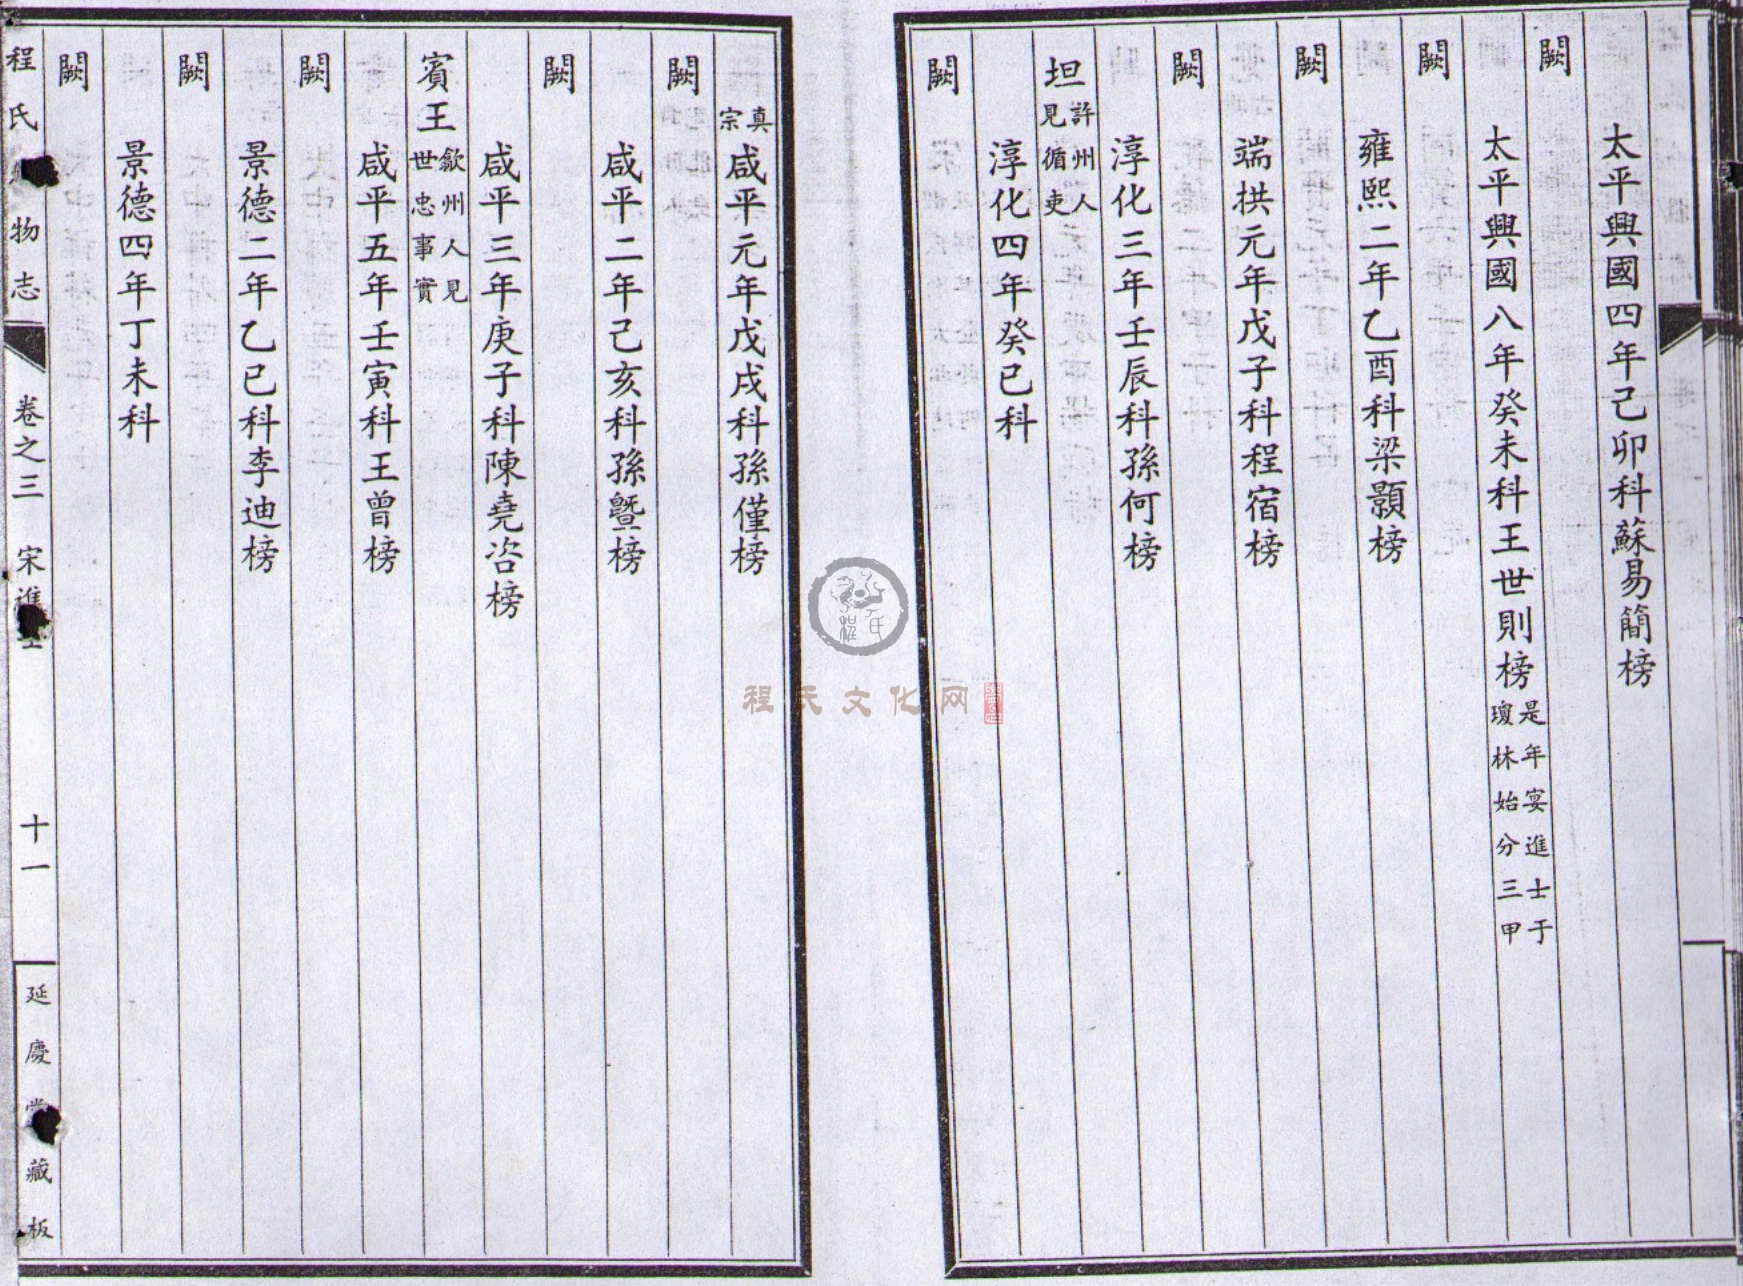 太平興國四年己卯科蘇易簡榜
闕
太平興國八年癸未科王世則榜
是年宴進士于
瓊林始分三甲
闕
雍熙二年乙酉科梁顥榜
闕
端拱元年戊子科程宿榜
闕
淳化三年壬辰科孫何榜
坦
許州人
見循吏
淳化四年癸巳科
闕
真宗
咸平元年戊戌科孫僅榜
闕
咸平二年己亥科孫曁榜
闕
咸平三年庚子科陳堯咨榜
賓王
歙州人見
世忠事實
咸平五年壬寅科王曾榜
闕
景德二年乙巳科李迪榜
闕
景德四年丁未科
闕
程氏
物志
卷之三
宋進士
十一
延慶
藏板
程氏文化网
程氏